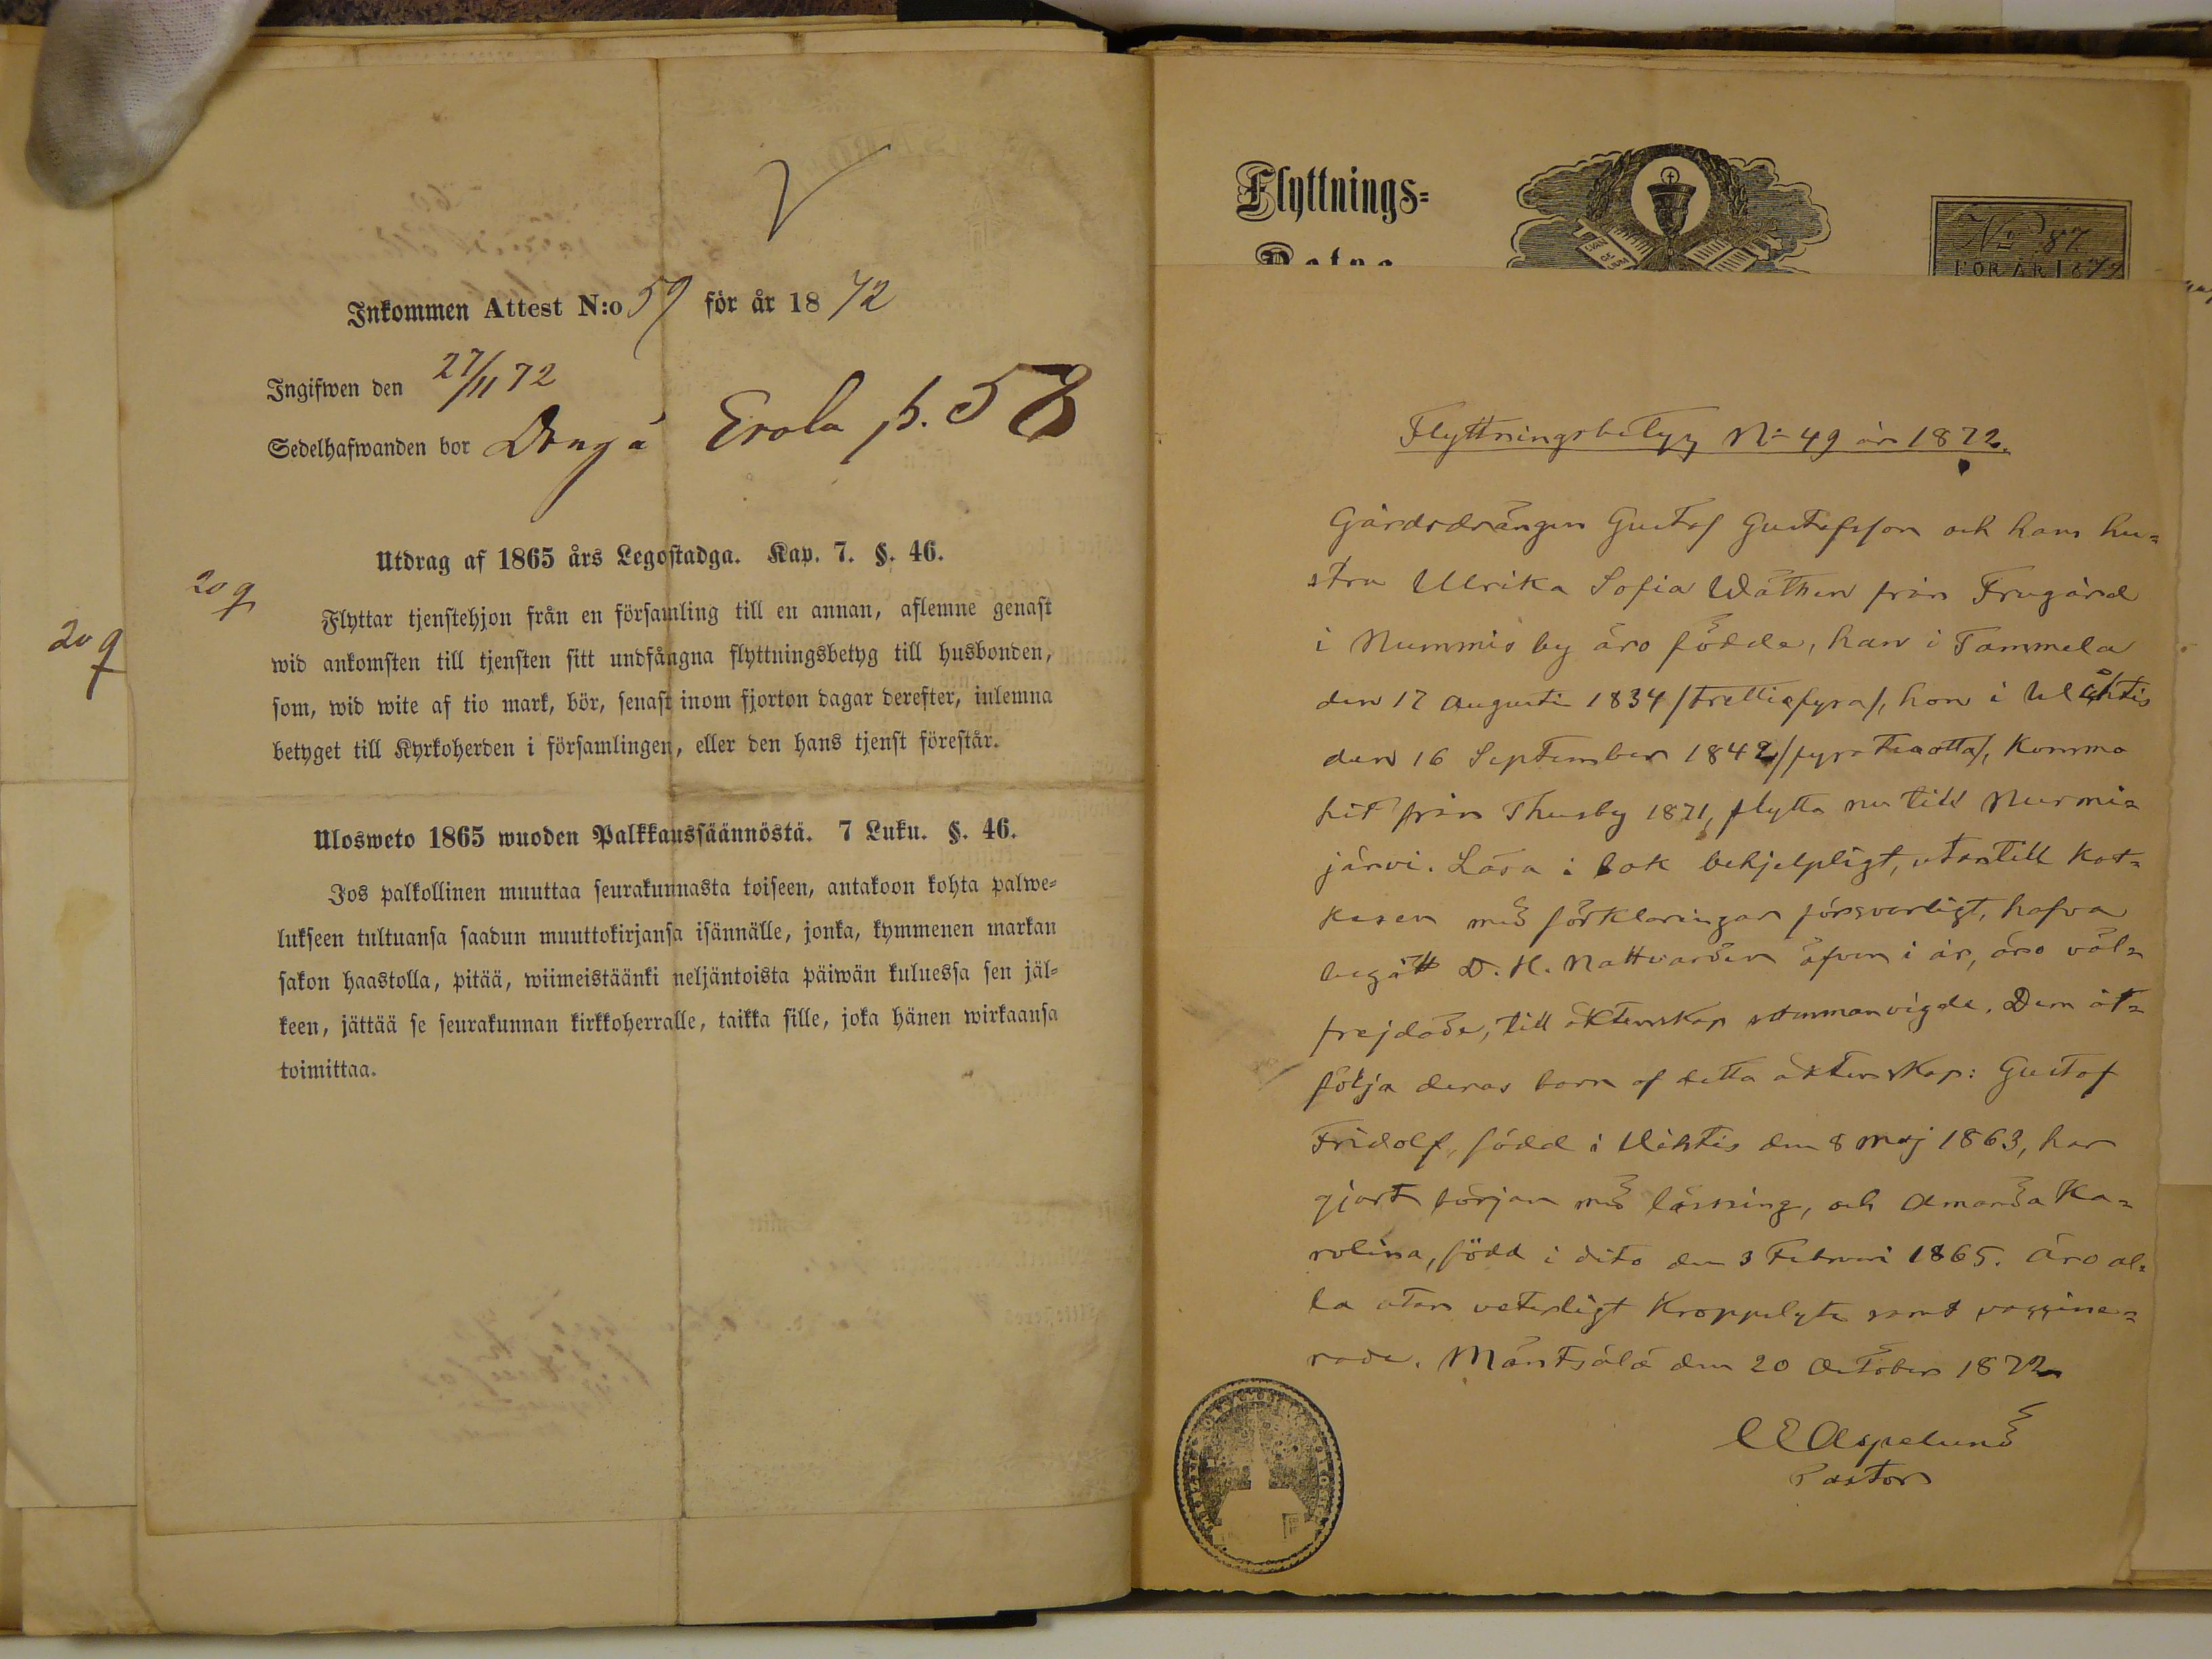 Inkommen Attest N:o 59 för år 1872
Ingifwen den 27/11 72
Sedelhafwanden bor Dräng å Erola p. 58
Utdrag af 1865 års Legostadga. Kap. 7. §. 46.
20 9
20 9
Flyttar tjenstehjon från en församling till en annan, aflemne genast
wid ankomsten till tjensten sitt undfångna flyttningsbetyg till husbonden,
som, wid wite af tio mark, bör, senast inom fjorton dagar derefter, inlemna
betyget till Kyrkoherden i församlingen, eller den hans tjenst förestår.
Ulosweto 1865 wuoden Palkkaussäännöstä. 7 Luku. §. 46.
Jos palkollinen muuttaa seurakunnasta toiseen, antakoon kohta palwe=
lukseen tultuansa saadun muuttokirjansa isännälle, jonka, kymmenen markan
sakon haastolla, pitää, wiimeistäänki neljäntoista päiwän kuluessa sen jäl=
keen, jättää se seurakunnan kirkkoherralle, taikka sille, joka hänen wirkaansa
toimittaa.
Flyttnings=
No 87
FÖR ÅR 1872
Flyttningsbetyg No 49 år 1872.
Gårdsdrängen Gustaf Gustafsson och hans hu=
stru Ulrika Sofia Wäthen från Frugård
i Nummis by äro födde, han i Tammela
den 17 Augusti 1834 /trettiofyra/, hon i
den 16 September 1842 /fyratio /, komma
hit från Thusby 1871, flytta nu till Nurmi=
järvi. Läsa i bok behjelpligt, utantill kat=
kesen med förklaringar försvarligt, hafva
begått D. H. Nattvarden äfven i år, äro väl=
frejdade, till äktenskap sammanvigde. Dem åt=
följa deras barn af detta äktenskap: Gustaf
Fridolf, född i Vihtis den 8 Maj 1863, har
gjort början med läsning, och Amanda Ka=
rolina, född i dito den 3 Februari 1865. Äro al=
la utan veterligt kroppslyte samt vaccine=
rade. Mäntsälä den 20 October 1872
Aspelund
Pastor